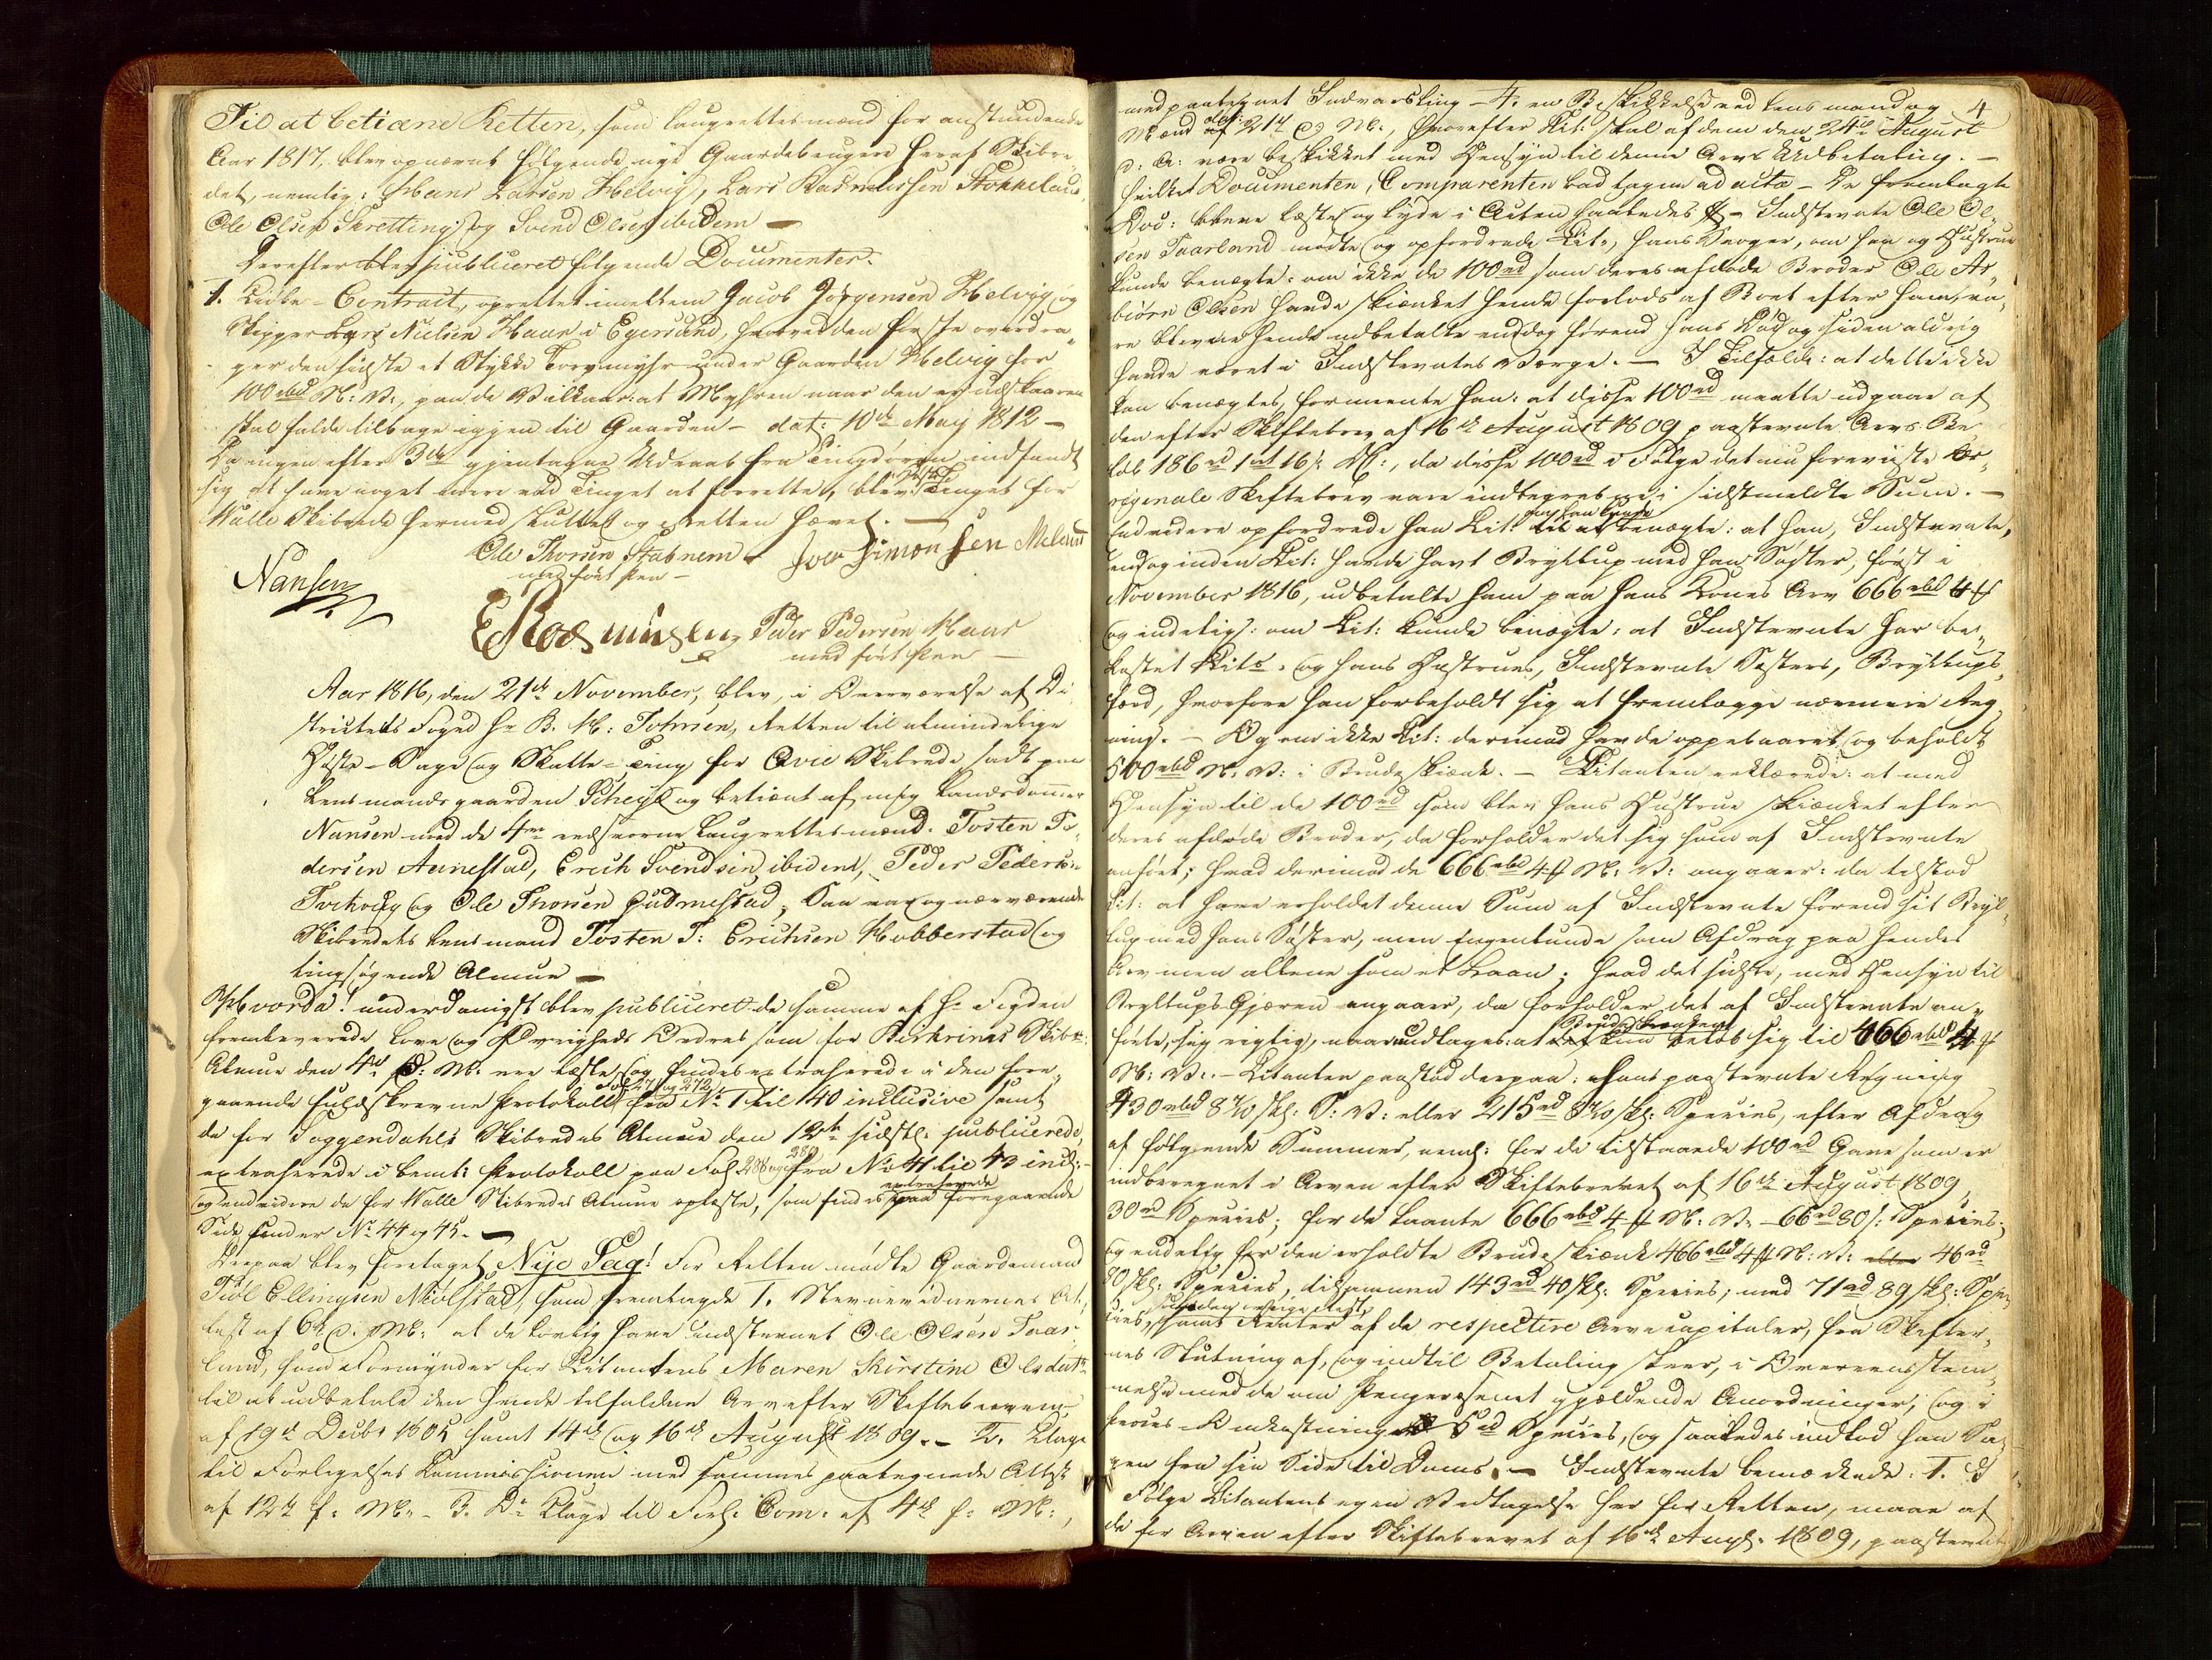 Til at betiene Retten, som Laugrettesmænd for anstundende
Aar 1817, blev opnævnt følgende nye Gaardebrugere heraf Skibre
det, nemlig: Hans Larsen Helvig, Lars Rasmussen Stokkeland,
Ole Olsen Skretting og Svend Olsen ibidem —
Derefter blev publiceret følgende Documenter:
1. Leie-Contract, oprettet imellem Jacob Jörgensen Helvig og
Skipper Lars Nielsen Haar i Egersund, hvorved den første overdra„
ger den sidste et Stykke Torvmyhr under Gaarden Helvig for
100 rbd N: V:, paa de Vilkaar: at Myhren naar den er udskaaren
skal falde tilbage igjen til Gaarden — dat: 10de May 1812 —
Da ingen efter 3de gjentagne Udraab fra Tingdøren indfandt
sig at have noget mere ved Tinget at forrette, blev Tinget for
Walle Skibrede hermed sluttet og Retten hævet. —
Ole Thorsen Stabnem Iver Simonsen Meland
med ført Pen —
Nansen
E Rosmusen Peder Pedersen Haar
med ført Pen —
Aar 1816, den 21de November, blev, i Overværelse af Di
strictets Foged Hr B. H: Tohrsen, Retten til almindelige
Høste- Sage og Skatte-Ting for Ovie Skibrede sadt paa
Lensmandsgaarden Scheje og betient af mig Landsdommer
Nansen med de 4re eedsvorne Laugrettesmænd: Tosten Pe„
dersen Aarrestad, Erich Svendsen ibidem, Peder Pedersen
Tverhoug og Ole Thorsen Gudmestad, Saa var og nærværende
Skibredets Lensmand Tosten T: Erichsen Hobberstad og
tingsøgende Almue —
Hvorda! underdanigst blev publiceret de samme af Hr Fogden
fremleverede Love og Øvrigheds Ordres som for Birkrims Skibr:
Almue den 4de d: M: ere læste, og findes extraherede i den fore„
Fol 271 og 272
gaaende fuldskrevne Protokoll fra No 1 til 40 inclusive samt
de for Soggendahls Skibredes Almue den 12te sidstl: publicerede,
extraherede i bemte Protokoll paa Fol: 288 og 289 fra No 41 til 43 incl: —
extraherede
og endvidere de for Walle Skibredes Almue oplæste, som findes paa foregaaende
Side under No 44 og 45. —
Derpaa blev foretaget Nye Sag! For Retten mødte Gaardemand
Tiöl Ellingsen Miölstad, som fremlagde 1. Stevnevidnernes At„
test af 6te d: M: at de lovlig have indstevnet Ole Olsen Taar
land, som Formynder for Citantens Maren Kirstine Olsdatr
til at udbetale den hende tilfaldne Arv efter Skiftebreve
af 19de Decbr 1805 samt 14de og 16de August 1809. — 2. Klage
til Forligelses Commissionen med sammes paategnede Attest
af 12te f: M: — 3. Do Klage til Forl: Com: af 4de f: M:,
4
med paategnet Indvarsling — 4. en Beskikkelse ved Lensmand og
dat:
Mænd af 21de d: M:, hvorefter Cit: skal af dem den 24de August
d: A: være beskikket med Hensyn til denne Arvs Udbetaling. —
hvilket Documenten, Comparenten bad tagen ad acta — De fremlagte
Doc: bleve læste og lyde i Acten saaledes — Indstevnte Ole Ol„
sen Taarland mødte og opfordrede Cit:, hans Svoger, om han og Hustrue
kunde benægte: om ikke de 100 rd som deres afdøde Broder Ole As„
biörn Olsen havde skienket hende forlods af Boet efter ham, va„
re bleven hende udbetalte endog førend hans Død og siden aldrig
havde været i Indstevntes Værge. — I Tilfælde: at dette ikke
kan benægtes, formeente han: at disse 100 rd maatte udgaae af
den efter Skiftebrev af 16de August 1809 paastevnte Arvs Be
løb 186 rd 1 ort 16 s D:, da disse 100 rd i Følge det nu foreviiste Or„
riginale Skiftebrev vare indbegrebne i sidstmeldte Sum. —
om han kunde
Endvidere opfordrede han Cit: til at benægte: at han, Indstevnte,
endog inden Cit: havde havt Bryllup med hans Søster, først i
November 1816, udbetalte ham paa hans Kones Arv 666 rbd 4 ß
og endelig: om Cit: kunde benægte: at Indstevnte har be„
kostet Cits og hans Hustrues, Indstevnte Søsters, Bryllups
færd, hvorfore han forbeholdt sig at fremlægge nærmere Reg„
ning. — Og om ikke Cit: derimod havde oppebaaret og beholdt
500 rbd N: V: i Brudeskienk. — Citanten erklærede: at med
Hensyn til de 100 rd som blev hans Hustrue skienket efter
deres afdøde Broder, da forholder det sig som af Indstevnte
anført; hvad derimod de 666 rbd 4 ß N: V: angaaer: da tilstod
Cit: at have erholdet denne Sum af Indstevnte førend sit Bryl„
lup med hans Søster, men ingenlunde som Afdrag paa hendes
Arv men allene som et Laan; hvad det sidste, med Hensyn til
Bryllups Gjæren angaaer, da forholder det af Indstevnte an„
Brudeskienken
førte, sig rigtig, naar undtages: at kun beløb sig til 466 rbd 4 ß
N: V: — Citanten paastod derpaa: hans paastevnte Regning
430 rbd 8 7/10 sk: S: V: eller 215 rd 8 7/10 sk: Species, efter Afdrag
af følgende Summer, neml: for de tilstaaede 100 rd Gave som er
indberegnet i Arven efter Skiftebrevet af 16de August 1809,
30 rd Species; for de laante 666 rbd 4 ß N: V: — 66 rd 80 s: Species;
og endelig for den erholdte Brudeskienk 466 rbd 4 ß N: V: eller 46 rd
80 sk: Species, tilsammen 143 rd 40 sk: Species; med 71 rd 89 sk: Spe„
cies, samt Renter af de respective Arvecapitaler, fra Skifter„
nes Slutning af, og indtil Betaling skeer, i Overeensstem„
melse med de om Pengevæsenet gjældende Anordninger; og i
Proces-Omkostninger 5 rd Species, og saaledes indlod han Sa„
gen fra sin Side til Doms. — Indstevnte bemærkede: 1. I
Følge Citantens egen Vedtagelse her for Retten, maae af
de for Arven efter Skiftebrevet af 16de Augst 1809, paastevnte